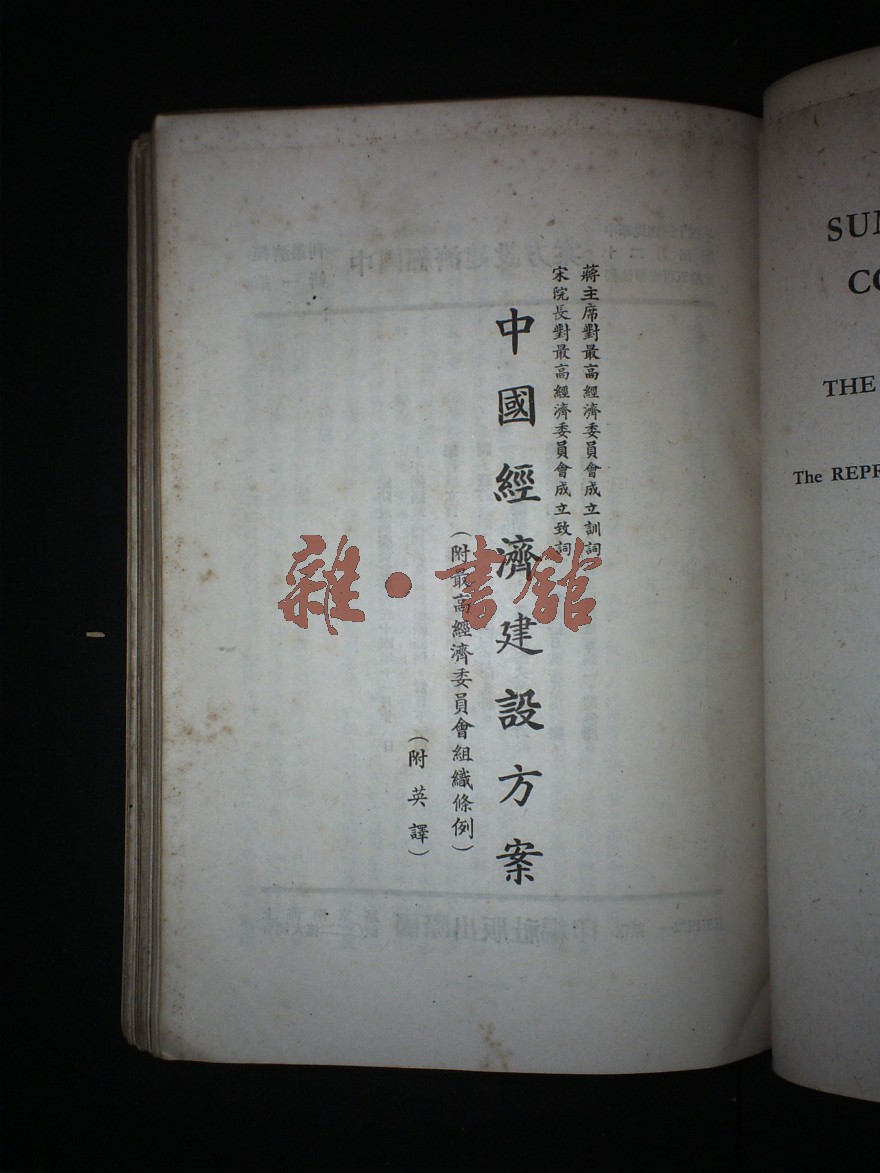 蔣主席對最高經濟委員會成立訓詞
宋院長對最高經濟委員會成立致詞
中國經濟建設方案
(附最高經濟委員會組織條例)
(附英譯)
雜·書館
SU
CO
THE
The REPR